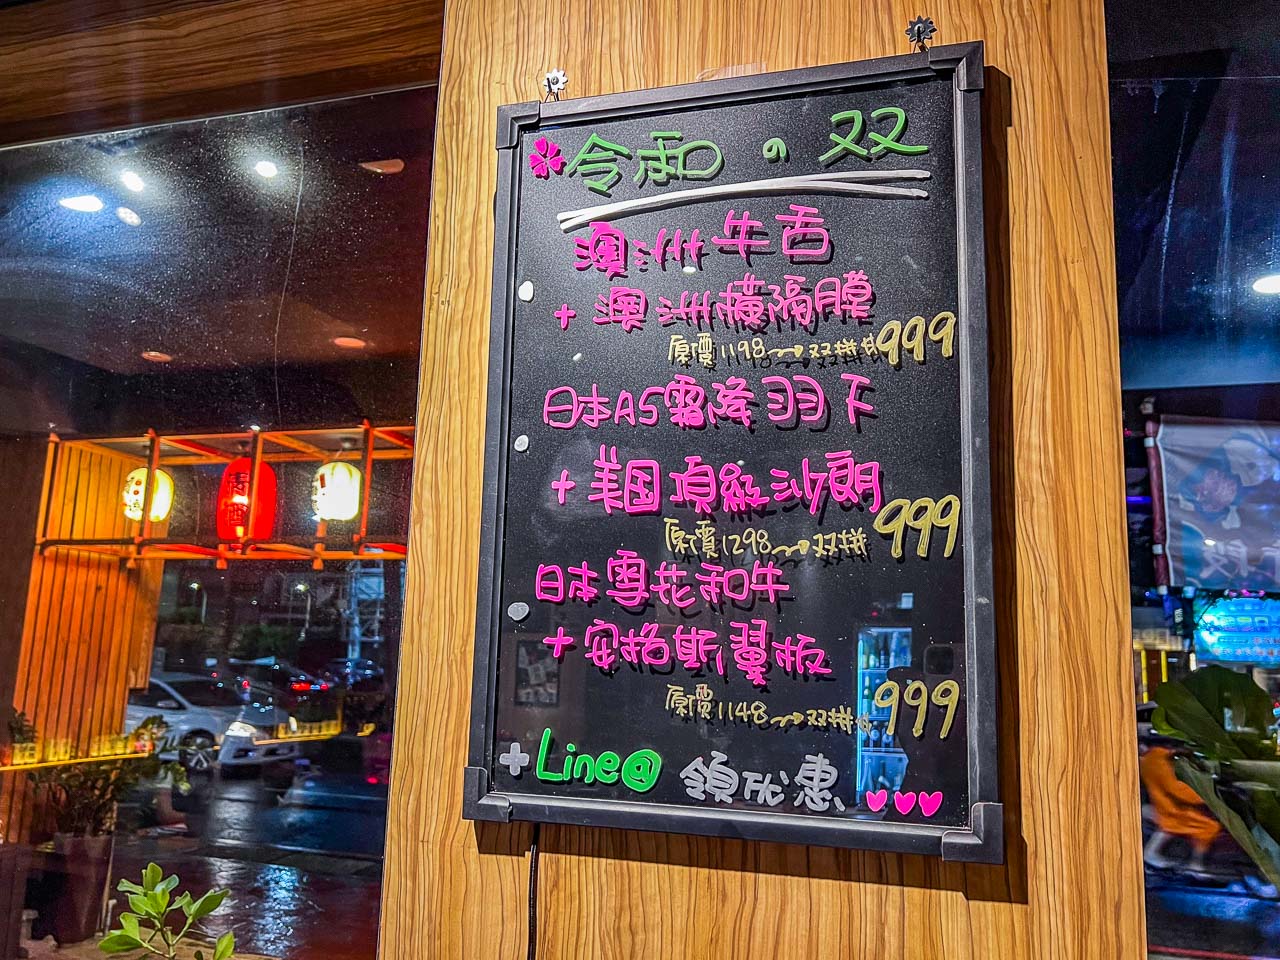 令和の双
澳洲牛舌
+澳洲橫隔膜
原價1198→双拼 999
日本A5霜降羽下
+美国頂級沙朗
原價1298→双拼 999
日本雪花和牛
+安格斯翼板
原價1148→双拼 999
+Line@ 領优惠